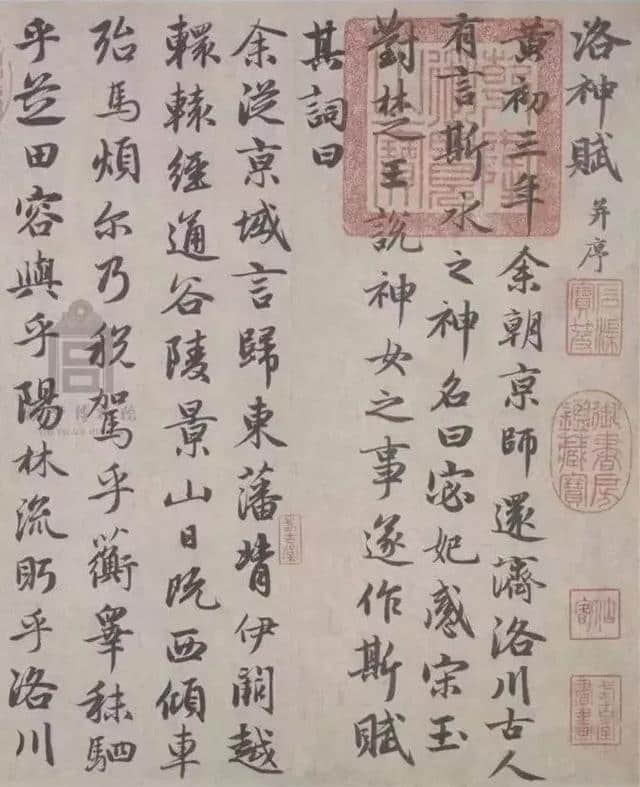 洛神賦 并序
黃初三年余朝京師還濟洛川古人
有言斯水之神名曰宓妃感宋玉
對楚王說神女之事遂作斯賦
其詞曰
余從京域言歸東藩背伊闕越
轘轅經通谷陵景山日既西傾車
殆馬煩尔乃税駕乎蘅皋秣駟
乎芝田容與乎陽林流眄乎洛川
石渠寶笈
御書房鑑藏寶